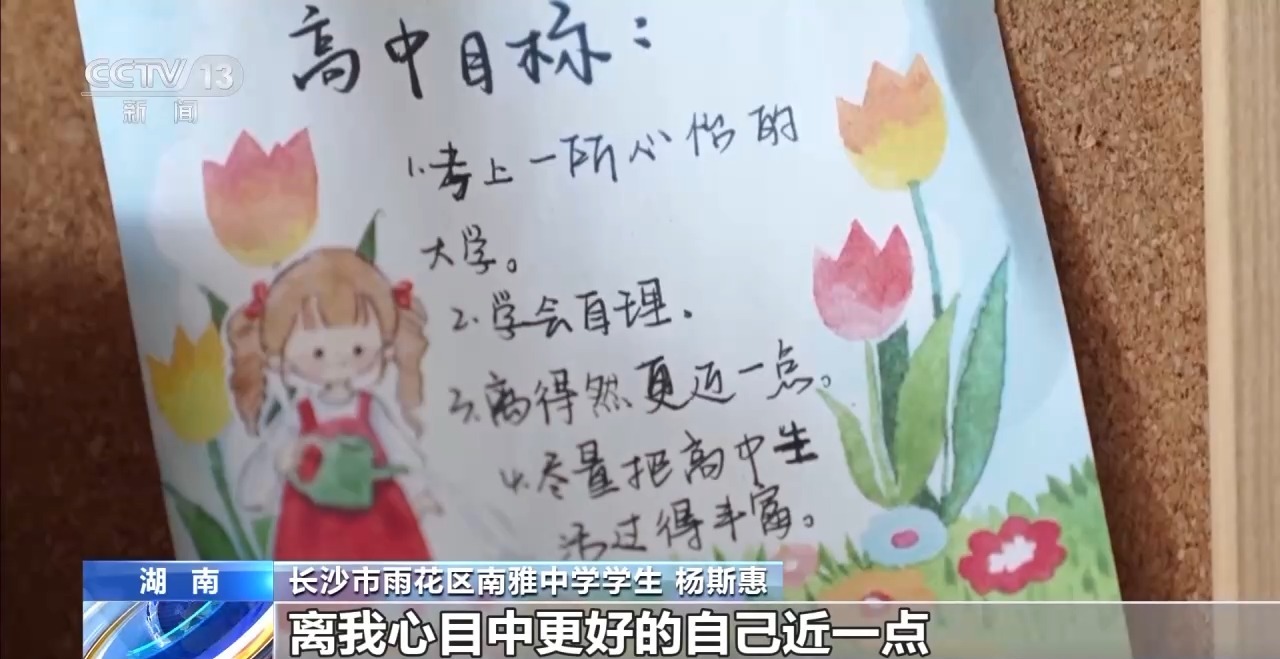 CCTV 13
新闻
高中目标：
1.考上一所心怡的
大学。
2.学会自理.
3.离得然更近一点。
4.尽量把高中生
活过得丰富。
湖南
长沙市雨花区南雅中学学生 杨斯惠
离我心目中更好的自己近一点